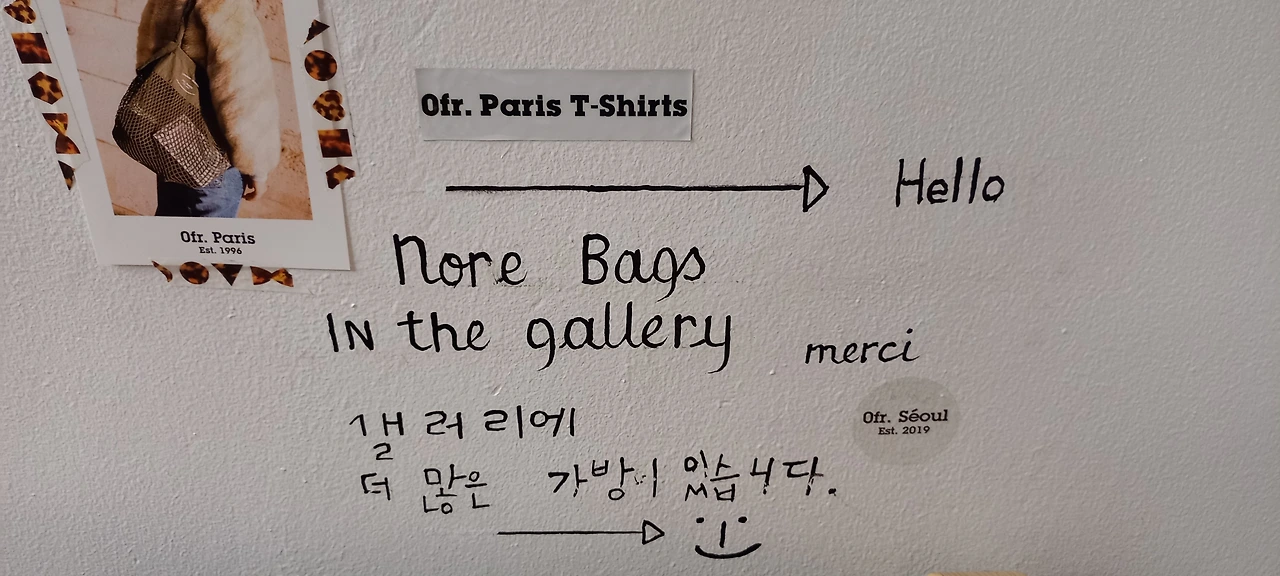 0fr. Paris
Est. 1996
0fr. Paris T-Shirts
Hello
More Bags
IN the gallery
merci
갤러리에
더 많은 가방이 있습니다.
0fr. Séoul
Est. 2019